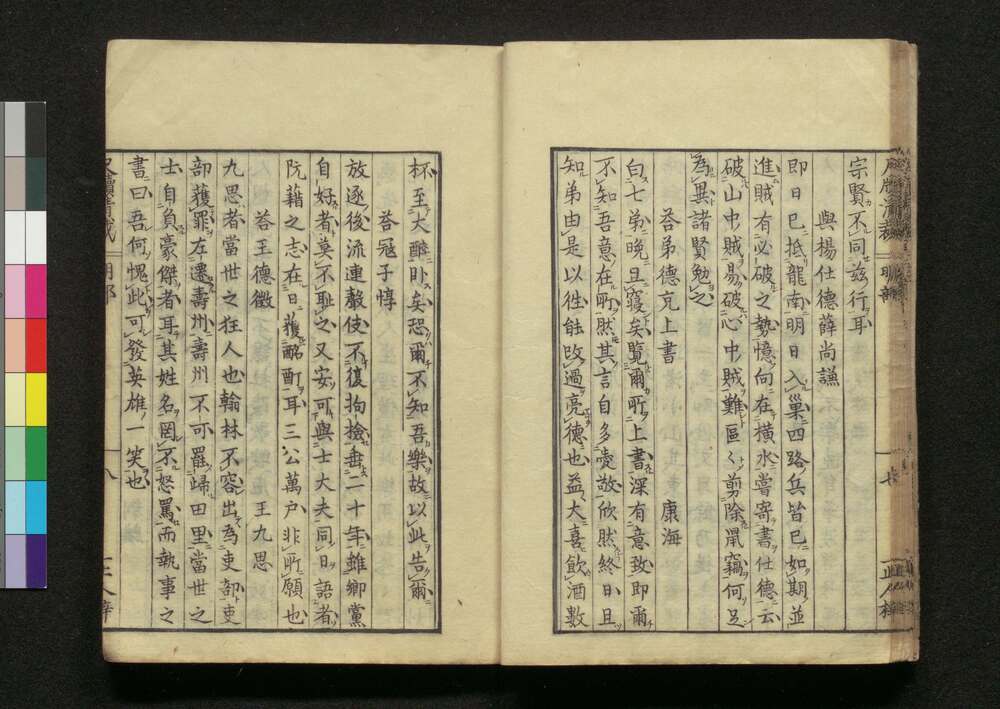 宗賢不同茲行耳
與楊仕德薛尚謙
即日已抵龍南明日入巢四路兵皆已如期並
進賊有必破之勢憶向在橫水嘗寄書仕德云
破山中賊易破心中賊難區〻剪除鼠竊何足
為異諸賢勉之
荅弟德充上書　康海
白七弟晚旦寢矣覽爾所上書深有意致即爾
不知吾意在所然其言自多壹故欣然終日且
知弟由是以徃能改過亮德也益大喜飲酒數
杯至大醉卧矣恐爾不知吾樂故以此告爾
荅冦子惇
放逐後流連聲伎不復拘撿垂二十年雖鄉黨
自好者莫不恥之又安可與士大夫同日語者
阮籍之志在日獲酩酊耳三公萬戸非所願也
荅王德徵　王九思
九思者當世之狂人也翰林不容出為吏部吏
部獲罪左遷壽州壽州不可罷歸田里當世之
士自負豪傑者耳其姓名罔不怒罵而執事之
書曰吾何愧此可發英雄一笑也
十八